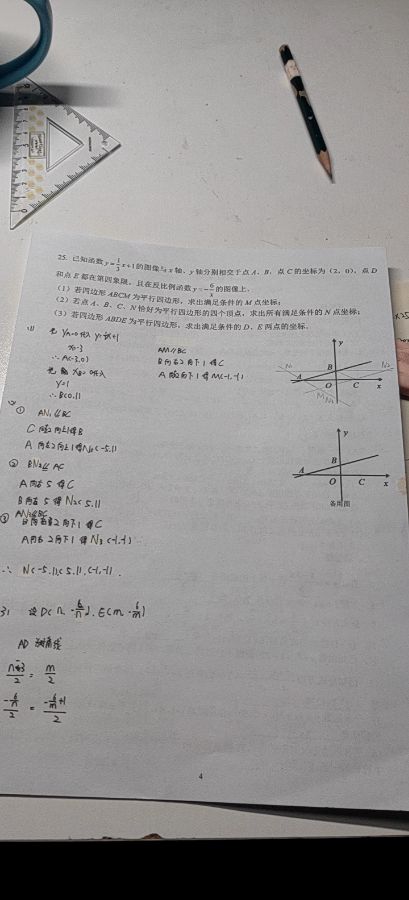 25. 已知函数 y=1/3x+1的图像与x轴、y轴分别相交于点A、B，点C的坐标为（2，0），点D
和点E都在第四象限，且在反比例函数 y=-6/x 的图像上.
（1）若四边形ABCM为平行四边形，求出满足条件的M点坐标；
（2）若点A、B、C、N恰好为平行四边形的四个顶点，求出所有满足条件的N点坐标；
（3）若四边形ABDE为平行四边形，求出满足条件的D、E两点的坐标.
(1) 把 yA=0代入 y=1/3x+1
x=-3
∴A(-3,0)
把 xB=0代入
y=1
∴B(0,1)
AM//BC
B向右2向下1得C
A向右2向下1得M(-1,-1)
y
B
A
O
C
x
M
N1
N2
(2)
① AN1//BC
C向左2向上1得B
A向左2向上1得N1(-5,1)
② BN2//AC
A向右5得C
B向右5得N2(5,1)
③ AN3//BC
B向右2向下1得C
A向右2向下1得N3(-1,-1)
∴N(-5,1),(5,1),(-1,-1).
y
B
A
O
C
x
备用图
(3) 设D(n,-6/n),E(m,-6/m)
AD为对角线
n-3/2=m/2
-6/n/2=-6/m+1/2
4